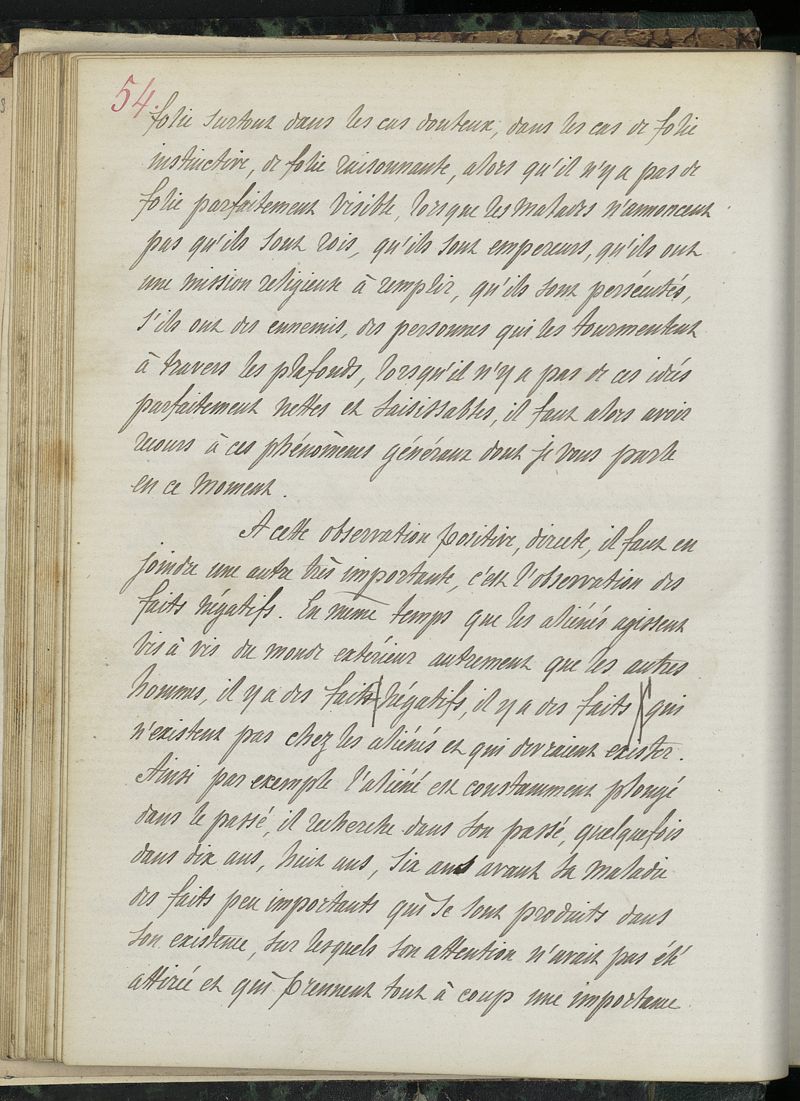 54
folie surtout dans les cas douteux, dans les cas de folie
instinctive, de folie raisonnante, alors qu'il n'y a pas de
folie parfaitement visible, lorsque les malades n'annoncent
pas qu'ils sont rois, qu'ils sont empereurs, qu'ils ont
une mission religieuse à remplir, qu'ils sont persécutés,
s'ils ont des ennemis, des personnes qui les tourmentent
à travers les plafonds, lorsqu'il n'y a pas de ces idées
parfaitement nettes et saisissables, il faut alors avoir
recours à ces phénomènes généraux dont je vous parle
en ce moment.
A cette observation positive, directe, il faut en
joindre une autre très importante, c'est l'observation des
faits négatifs. En même temps que les aliénés agissent
vis à vis du monde extérieur autrement que les autres
hommes, il y a des faits négatifs, il y a des faits qui
n'existent pas chez les aliénés et qui devraient exister.
Ainsi par exemple l'aliéné est constamment plongé
dans le passé, il recherche dans son passé, quelquefois
dans dix ans, huit ans, six ans avant sa maladie
des faits peu importants qui se sont produits dans
son existence, sur lesquels son attention n'avait pas été
attirée et qui prennent tout à coup une importance